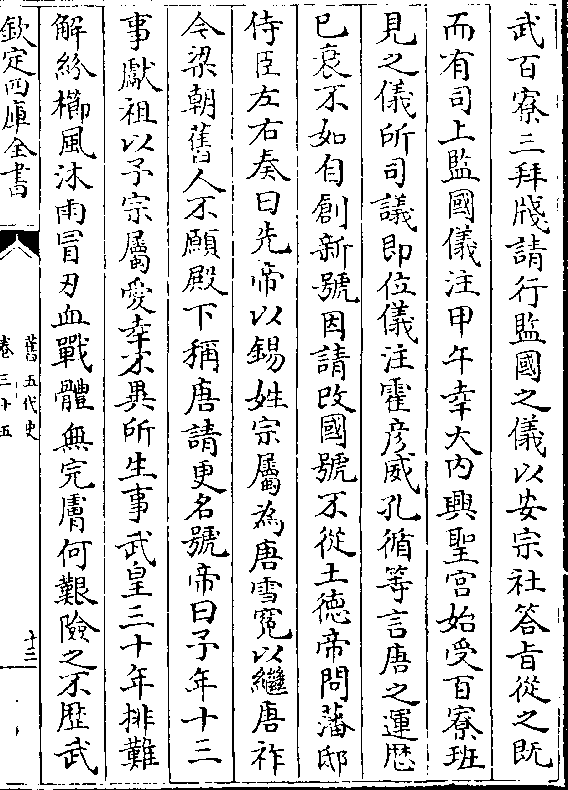 武百寮三拜牋請行監國之儀以安宗社答旨從之既
而有司上監國儀注甲午幸大内興聖宫始受百寮班
見之儀所司議即位儀注霍彦威孔循等言唐之運厯
已衰不如自創新號因請改國號不從土德帝問藩邸
侍臣左右奏曰先帝以錫姓宗屬為唐雪寃以繼唐祚
今梁朝舊人不願殿下稱唐請更名號帝曰予年十三
事獻祖以予宗屬愛幸不異所生事武皇三十年排難
解紛櫛風沐雨冒刃血戰體無完膚何艱險之不歷武
欽定四庫全書
舊五代史
卷三十五
十三